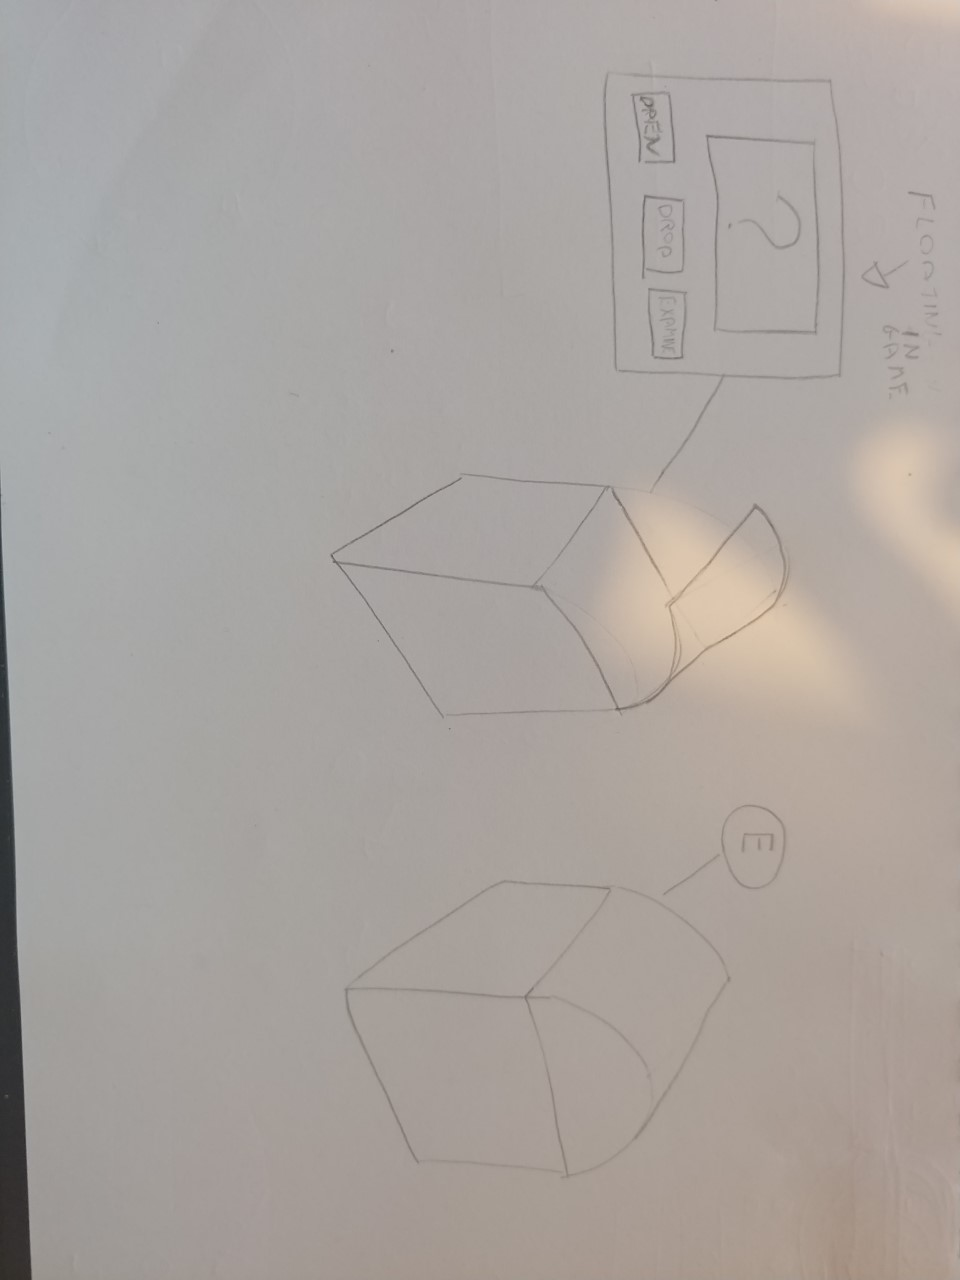 FLOATING
IN
GAME
?
OPEN
DROP
EXAMINE
E